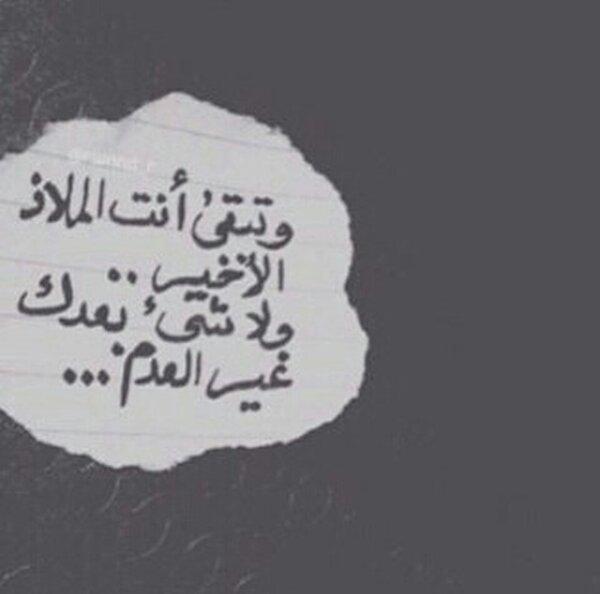 وتبقىٰ أنت الملاذ
الأخير ..
ولا شيء بعدك
غير العدم ...